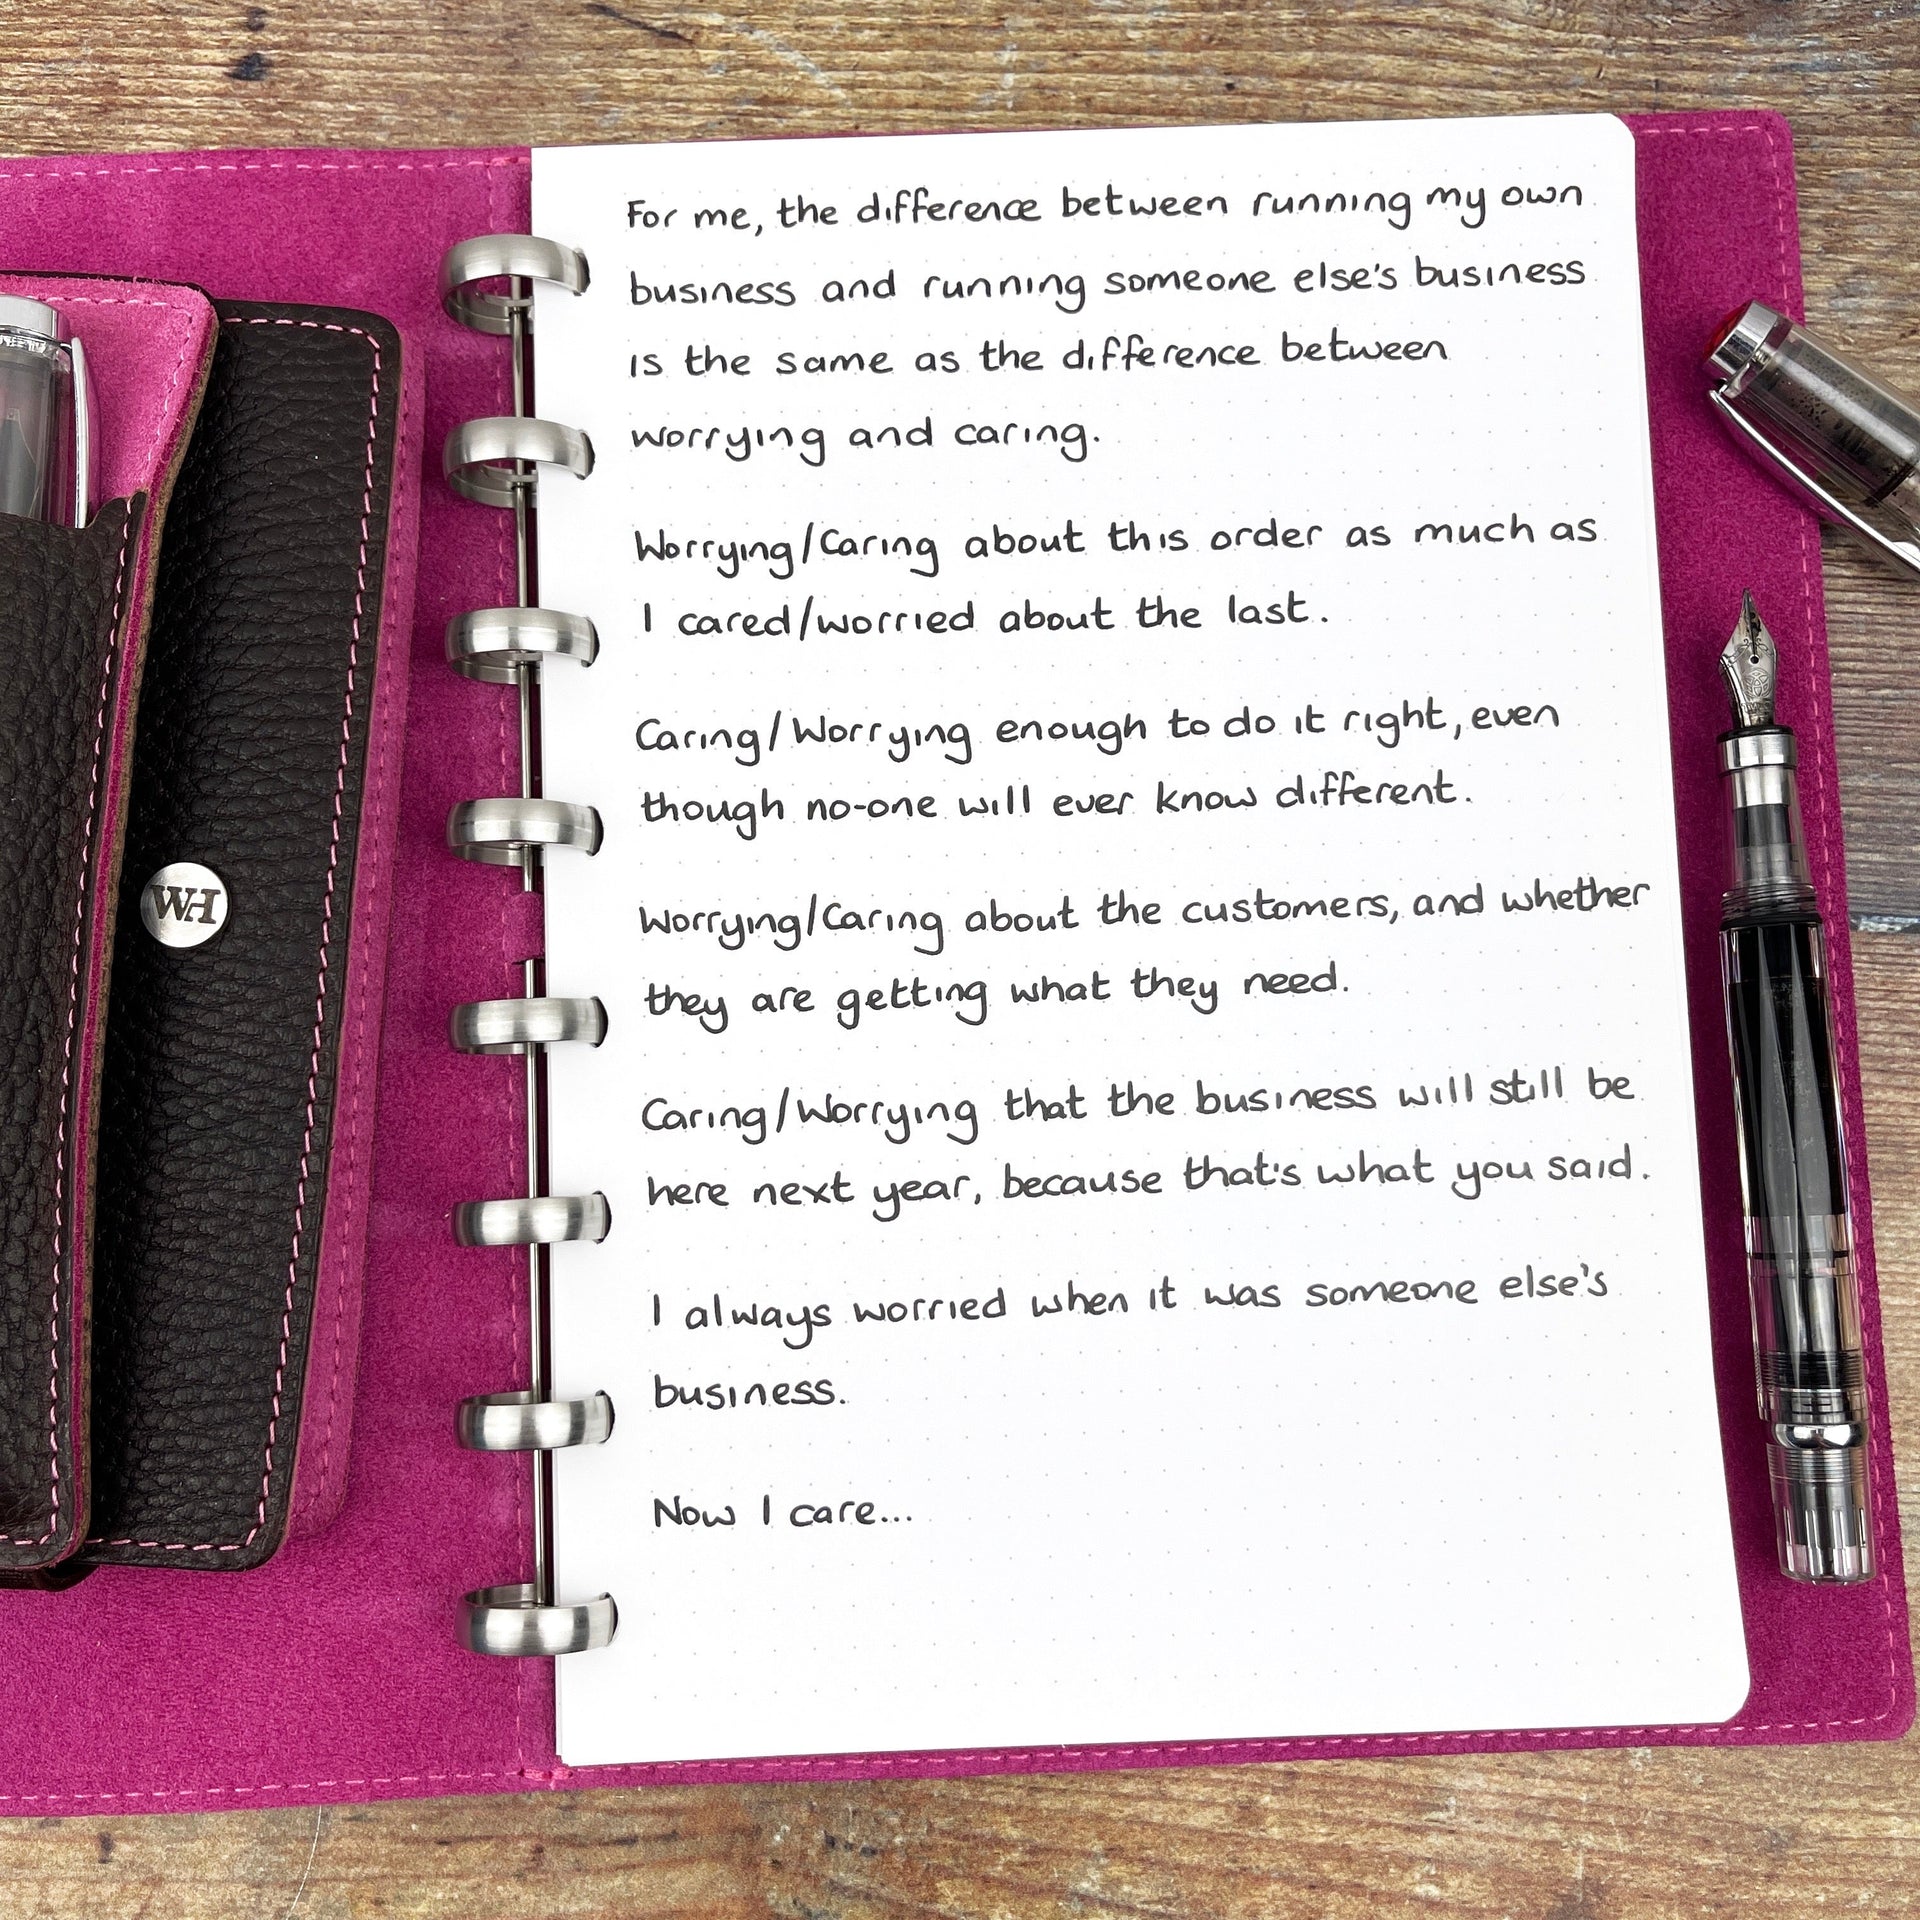 For me, the difference between running my own
business and running someone else's business
is the same as the difference between
worrying and caring.
Worrying/Caring about this order as much as
I cared/worried about the last.
Caring/Worrying enough to do it right, even
though no-one will ever know different.
Worrying/Caring about the customers, and whether
they are getting what they need.
Caring/Worrying that the business will still be
here next year, because that's what you said.
I always worried when it was someone else's
business.
Now I care...
WH